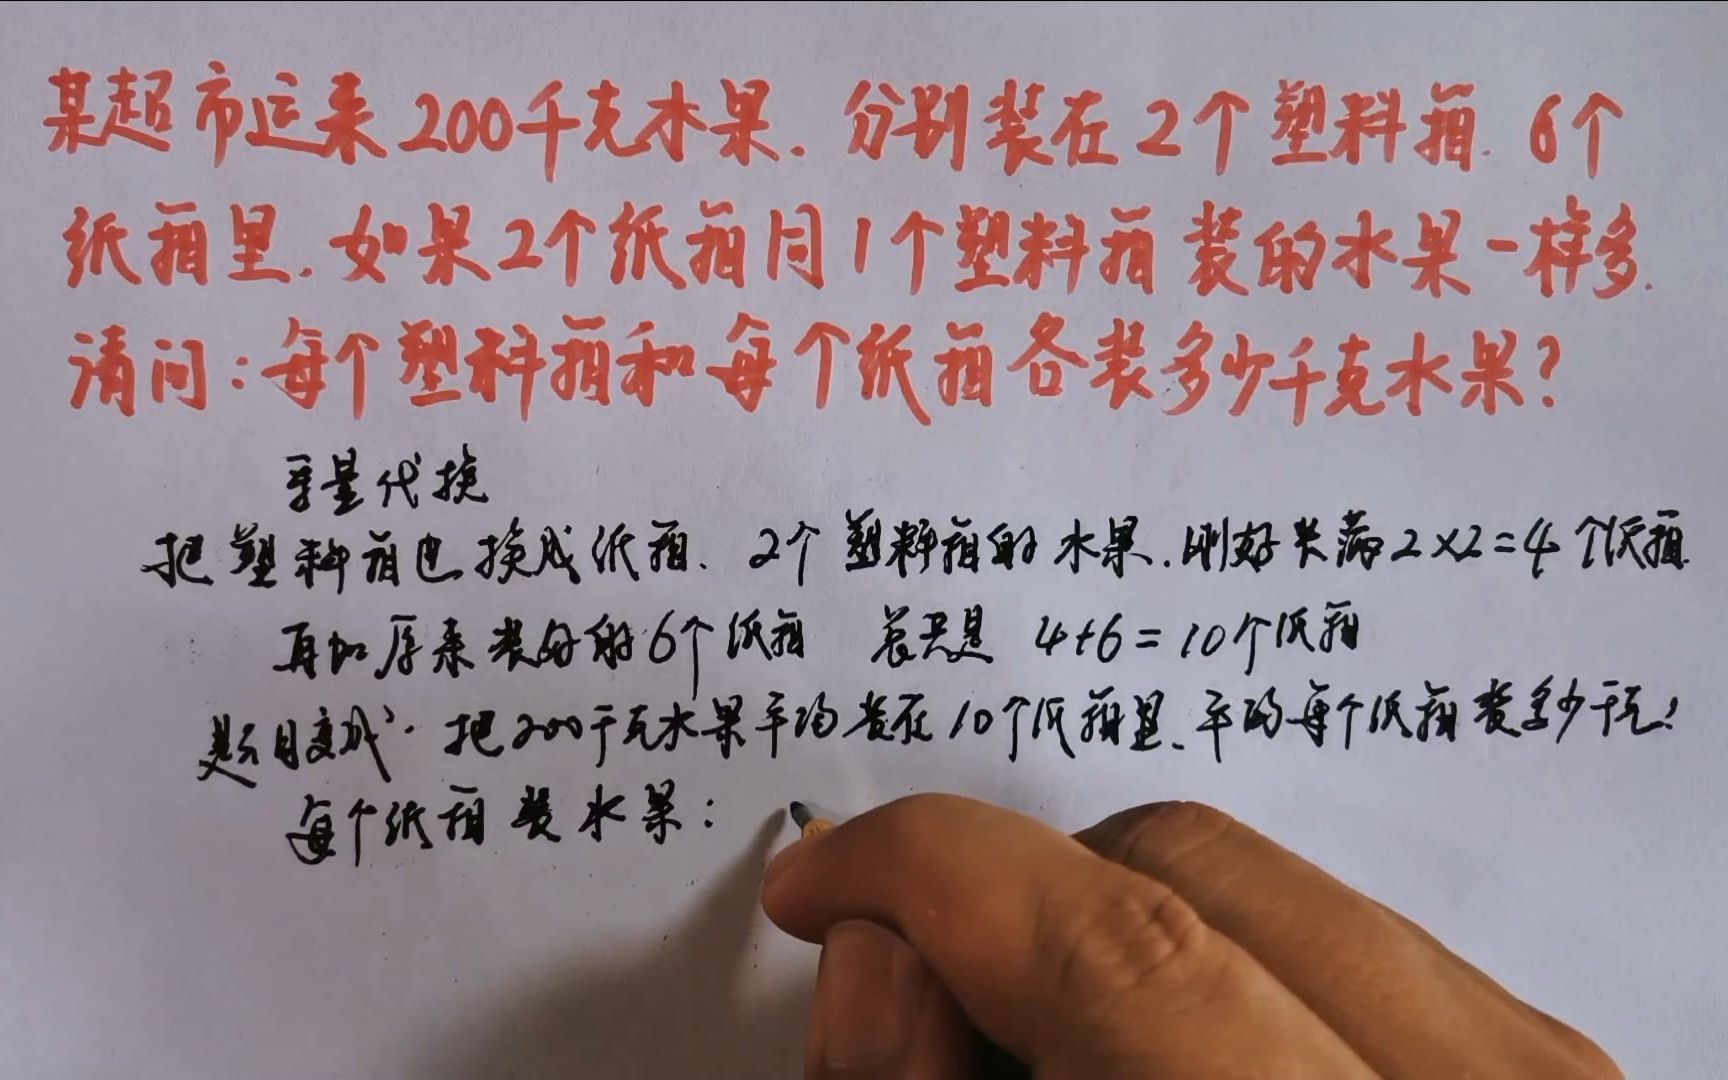 某超市运来200千克水果.分别装在2个塑料箱.6个
纸箱里.如果2个纸箱同1个塑料箱装的水果一样多.
请问:每个塑料箱和每个纸箱各装多少千克水果?
等量代换
把塑料箱也换成纸箱.2个塑料箱的水果.刚好装满2×2=4个纸箱
再加原来装好的6个纸箱 总共是 4+6=10个纸箱
题目变成:把200千克水果平均装在10个纸箱里、平均每个纸箱装多少千克?
每个纸箱装水果: